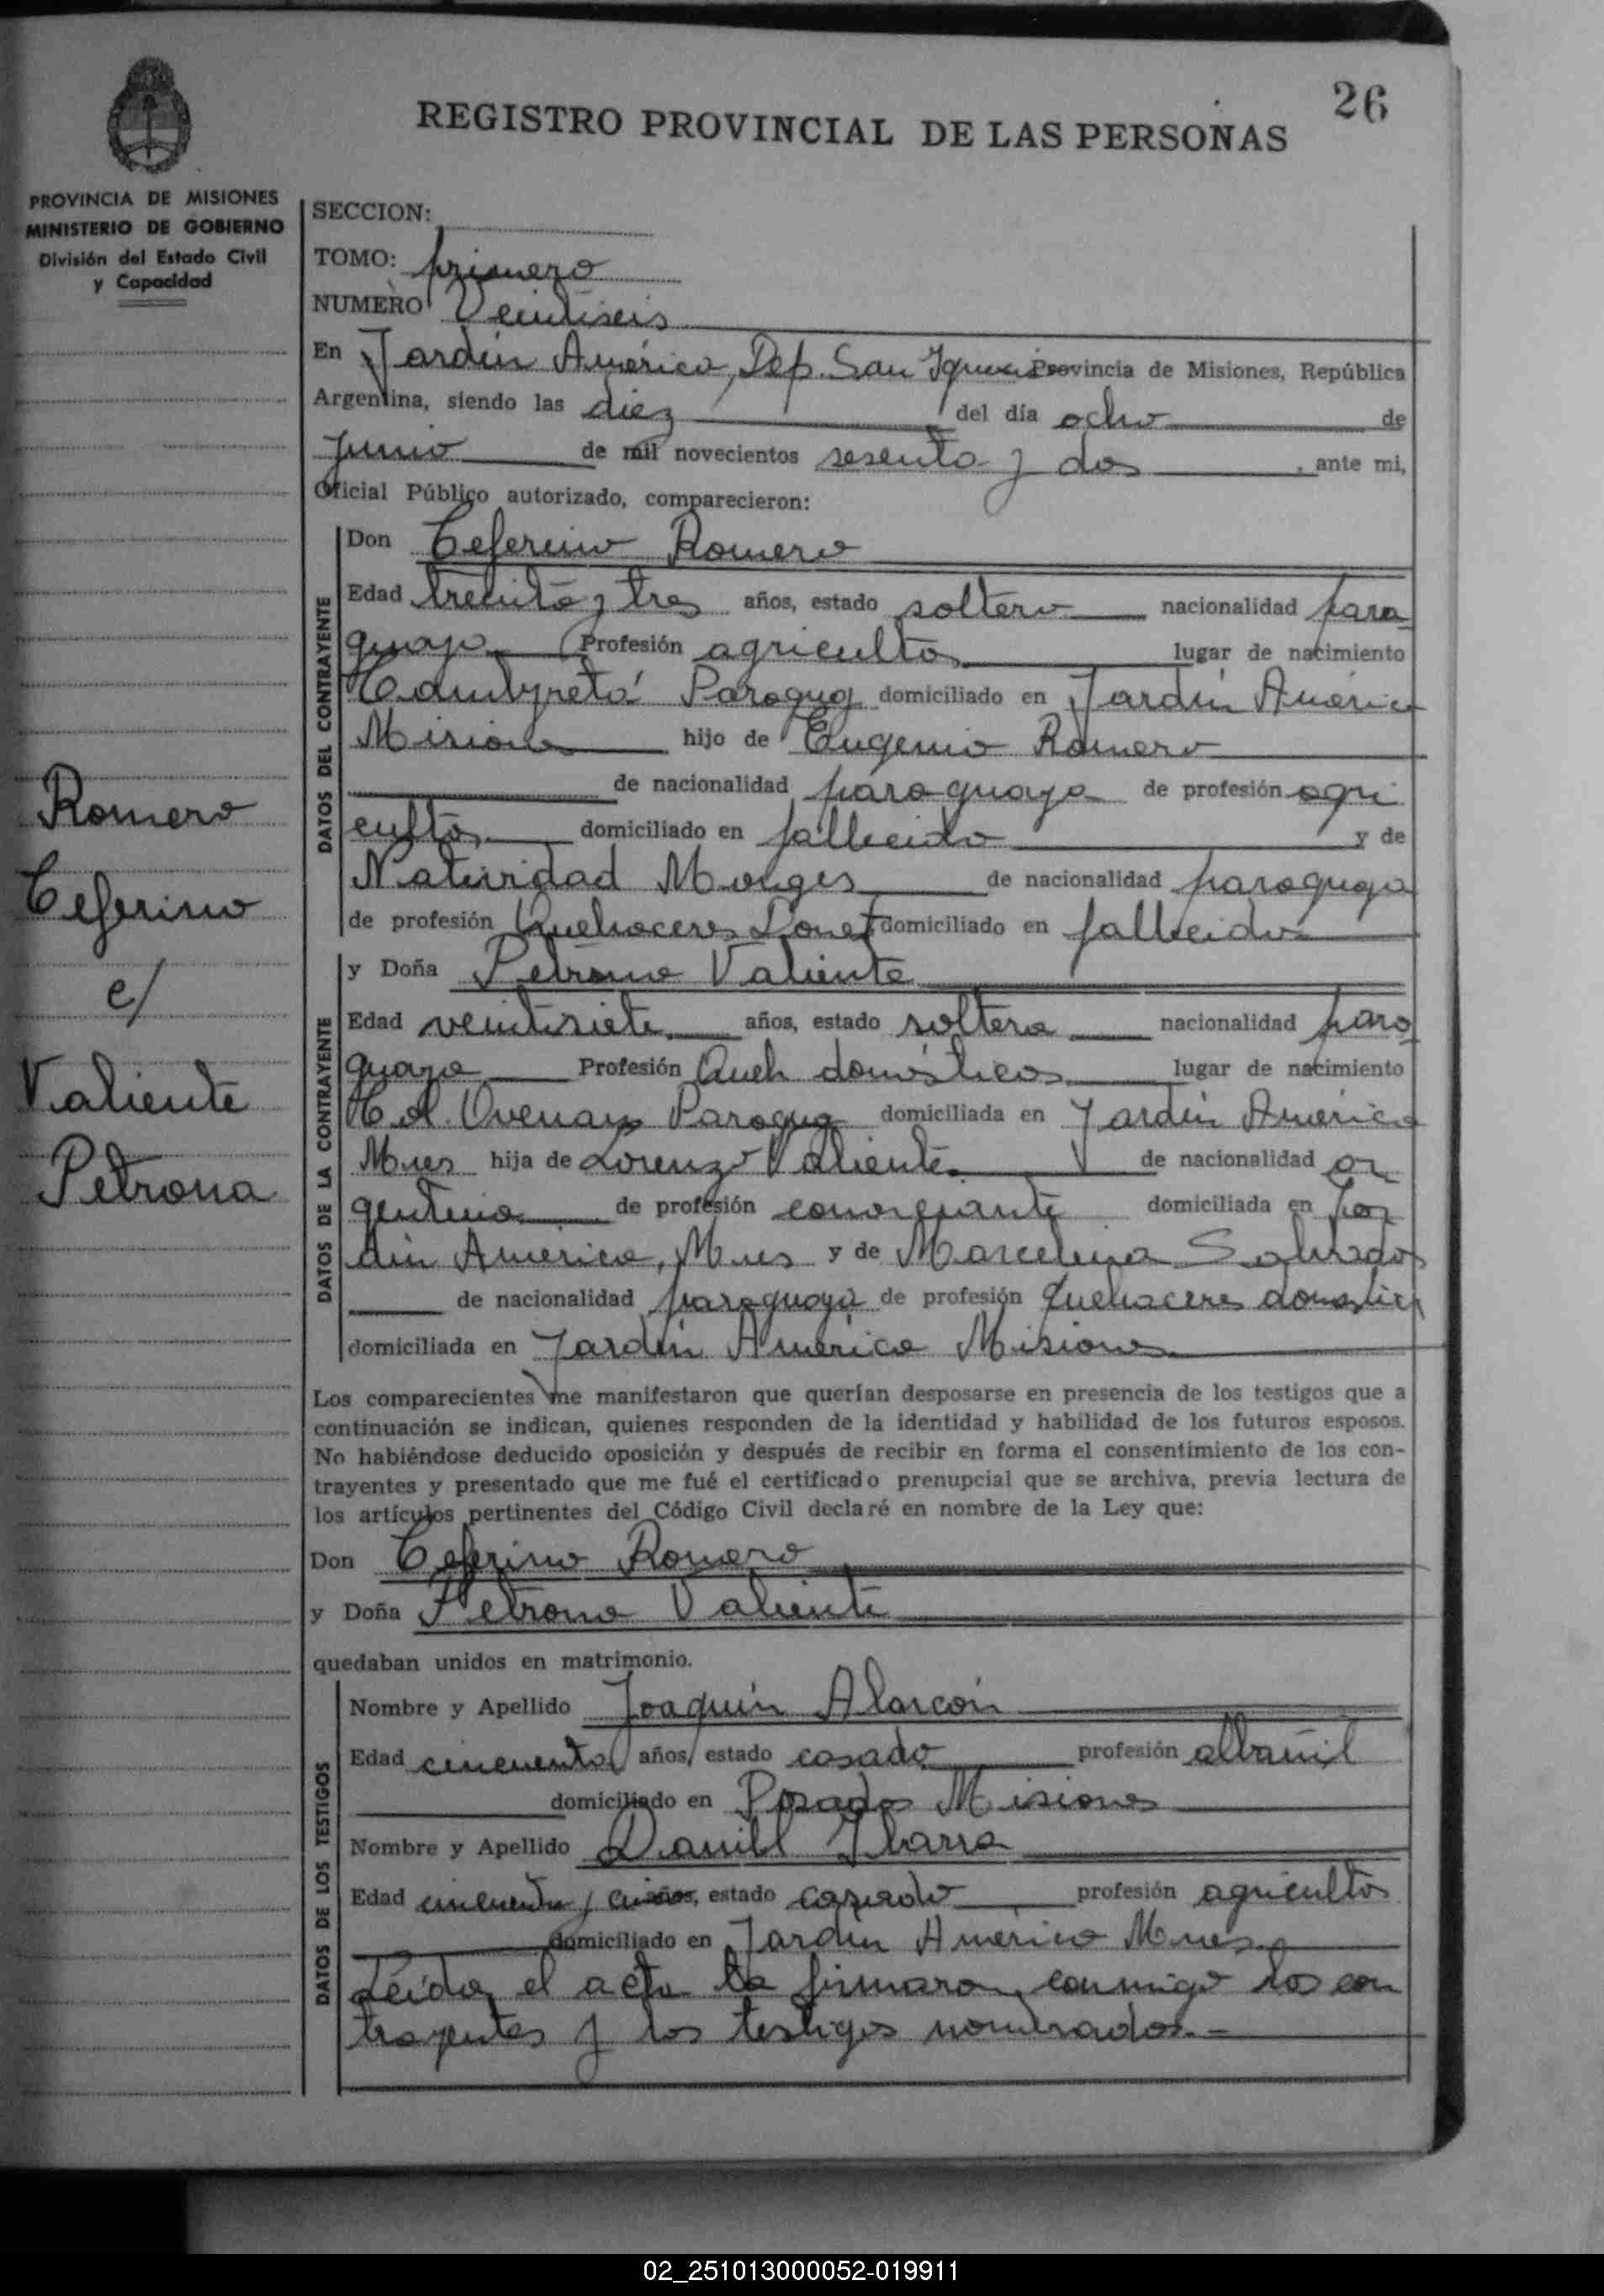 26
REGISTRO PROVINCIAL DE LAS PERSONAS
PROVINCIA DE MISIONES
MINISTERIO DE GOBIERNO
División del Estado Civil
y Capacidad
SECCION:
TOMO: primero
NUMERO Veintiseis
En Jardín América, Dep. San Ignacio Provincia de Misiones, República
Argentina, siendo las diez del día ocho de
Junio de mil novecientos sesenta y dos, ante mi,
Oficial Público autorizado, comparecieron:
DATOS DEL CONTRAYENTE
Don Ceferino Romero
Edad treinta y tres años, estado soltero nacionalidad para
guaya Profesión agricultor lugar de nacimiento
Paraguay domiciliado en Jardín América
Misiones hijo de Eugenio Romero
de nacionalidad paraguaya de profesión agri
cultor domiciliado en fallecido y de
Natividad Monges de nacionalidad paraguaya
de profesión Quehaceres Domest domiciliado en fallecida
Romero
Ceferino
c/
Valiente
Petrona
DATOS DE LA CONTRAYENTE
y Doña Petrona Valiente
Edad veintisiete años, estado soltera nacionalidad para
guaya Profesión Queh domésticos lugar de nacimiento
Paraguay domiciliada en Jardín América
Mnes hija de Lorenzo Valiente de nacionalidad ar
gentina de profesión comerciante domiciliada en Jar
dín América, Mnes y de Marcelina Salvador
de nacionalidad paraguaya de profesión Quehaceres domestic
domiciliada en Jardín América Misiones
Los comparecientes me manifestaron que querían desposarse en presencia de los testigos que a
continuación se indican, quienes responden de la identidad y habilidad de los futuros esposos.
No habiéndose deducido oposición y después de recibir en forma el consentimiento de los con-
trayentes y presentado que me fué el certificado prenupcial que se archiva, previa lectura de
los artículos pertinentes del Código Civil declaré en nombre de la Ley que:
Don Ceferino Romero
y Doña Petrona Valiente
quedaban unidos en matrimonio.
DATOS DE LOS TESTIGOS
Nombre y Apellido Joaquín Alarcón
Edad cincuenta años, estado casado profesión albañil
domiciliado en Posadas Misiones
Nombre y Apellido Daniel Ibarra
Edad cincuenta y años, estado casado profesión agricultor
domiciliado en Jardín América Mnes.
Leida el acta la firmaron conmigo los con
trayentes y los testigos nombrados.-
02_251013000052-019911